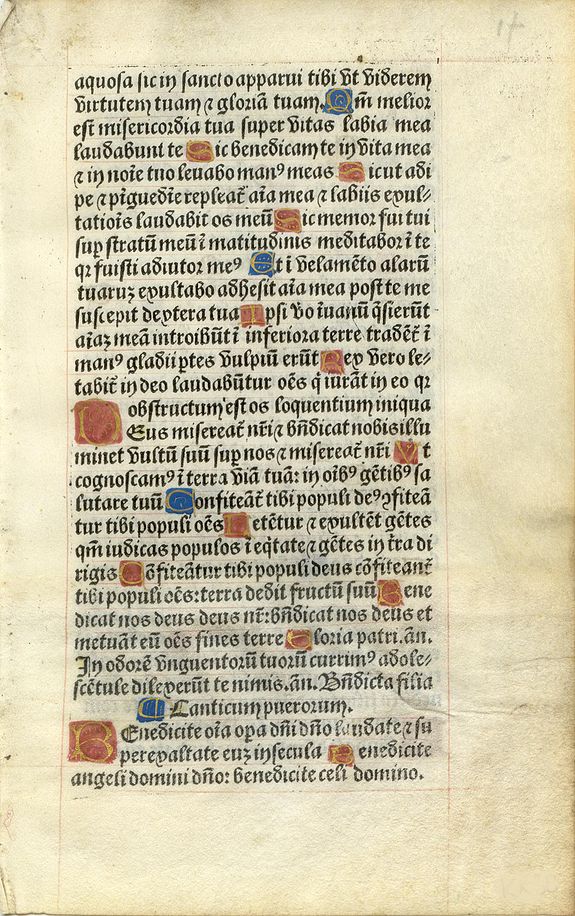 17
aquosa sic in sancto apparui tibi vt viderem
virtutem tuam ⁊ gloriā tuam. Qm̄ melior
est misericordia tua super vitas labia mea
laudabunt te Sic benedicam te in vita mea
⁊ in noīe tuo leuabo manꝰ meas Sicut adi
pe ⁊ pīguedīe repleat̄ aīa mea ⁊ labiis exul-
tatiōis laudabit os meū Sic memor fui tui
suꝑ stratū meū ī matitudinis meditabor ī te
qr fuisti adiutor meꝰ Et ī velamēto alarū
tuaruz exultabo adhesit aīa mea post te me
suscepit dextera tua Ipsi vo īuanū q̄sierūt
aīaz meā introibūt ī inferiora terre tradēt̄ ī
manꝰ gladii ꝑtes vulpiū erūt Rex vero le-
tabit̄ in deo laudabūtur oēs q̄ iurāt in eo qr
obstructum est os loquentium iniqua
Deus misereat̄ nr̄i ⁊ bn̄dicat nobis illu
minet vultū suū suꝑ nos ⁊ misereat̄ nr̄i Vt
cognoscamꝰ ī terra viā tuā: in oībꝰ gētibꝰ sa
lutare tuū Confiteāt̄ tibi populi deꝰ ꝯfiteā
tur tibi populi oēs Letētur ⁊ exultēt gētes
qm̄ iudicas populos ī eq̄tate ⁊ gētes in t̄ra di
rigis Cōfiteātur tibi populi deus cōfiteant̄
tibi populi oēs: terra dedit fructū suū Bene
dicat nos deus deus nr̄: bn̄dicat nos deus et
metuāt eū oēs fines terre Gloria patri. an̄.
In odorē vnguentorū tuorū currimꝰ adole-
scētule dilexerūt te nimis. an̄. Bn̄dicta filia
Canticum puerorum.
Benedicite oīa oꝑa dn̄i dn̄o laudate ⁊ su
perexaltate euz in secula Benedicite
angeli domini dn̄o: benedicite celi domino.